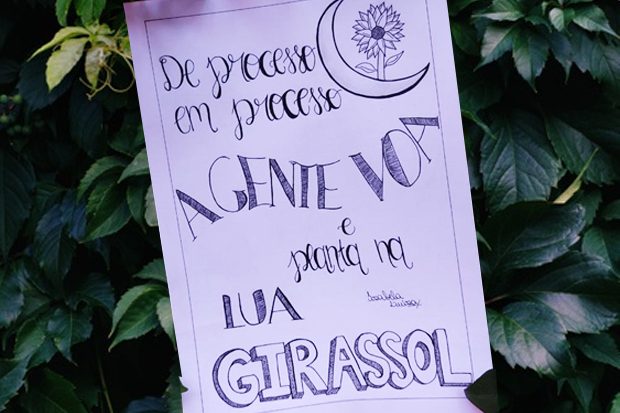 De processo
em processo
A GENTE VOA
e
planta na
LUA
Isabella
GIRASSOL